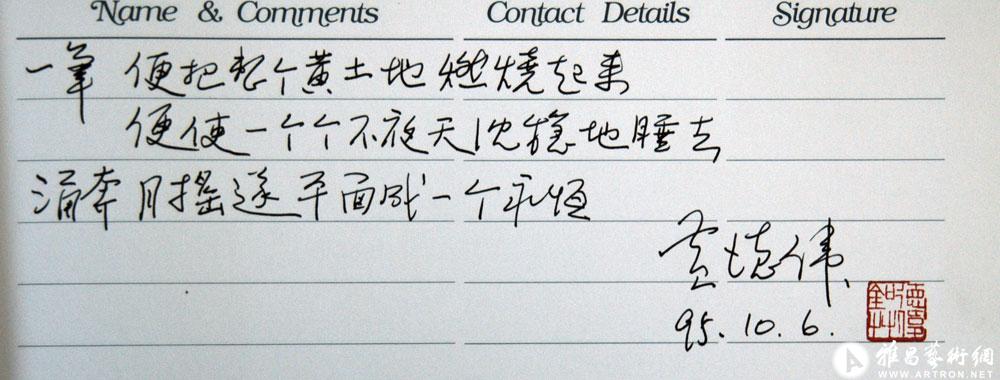 Name & Comments Contact Details Signature
一笔 便把整个黄土地燃烧起来
便使一个个不夜天沈稳地睡去
涌奔 月摇遂平面成一个永恒
德伟
95.10.6.
雅昌藝術網
WWW.ARTRON.NET